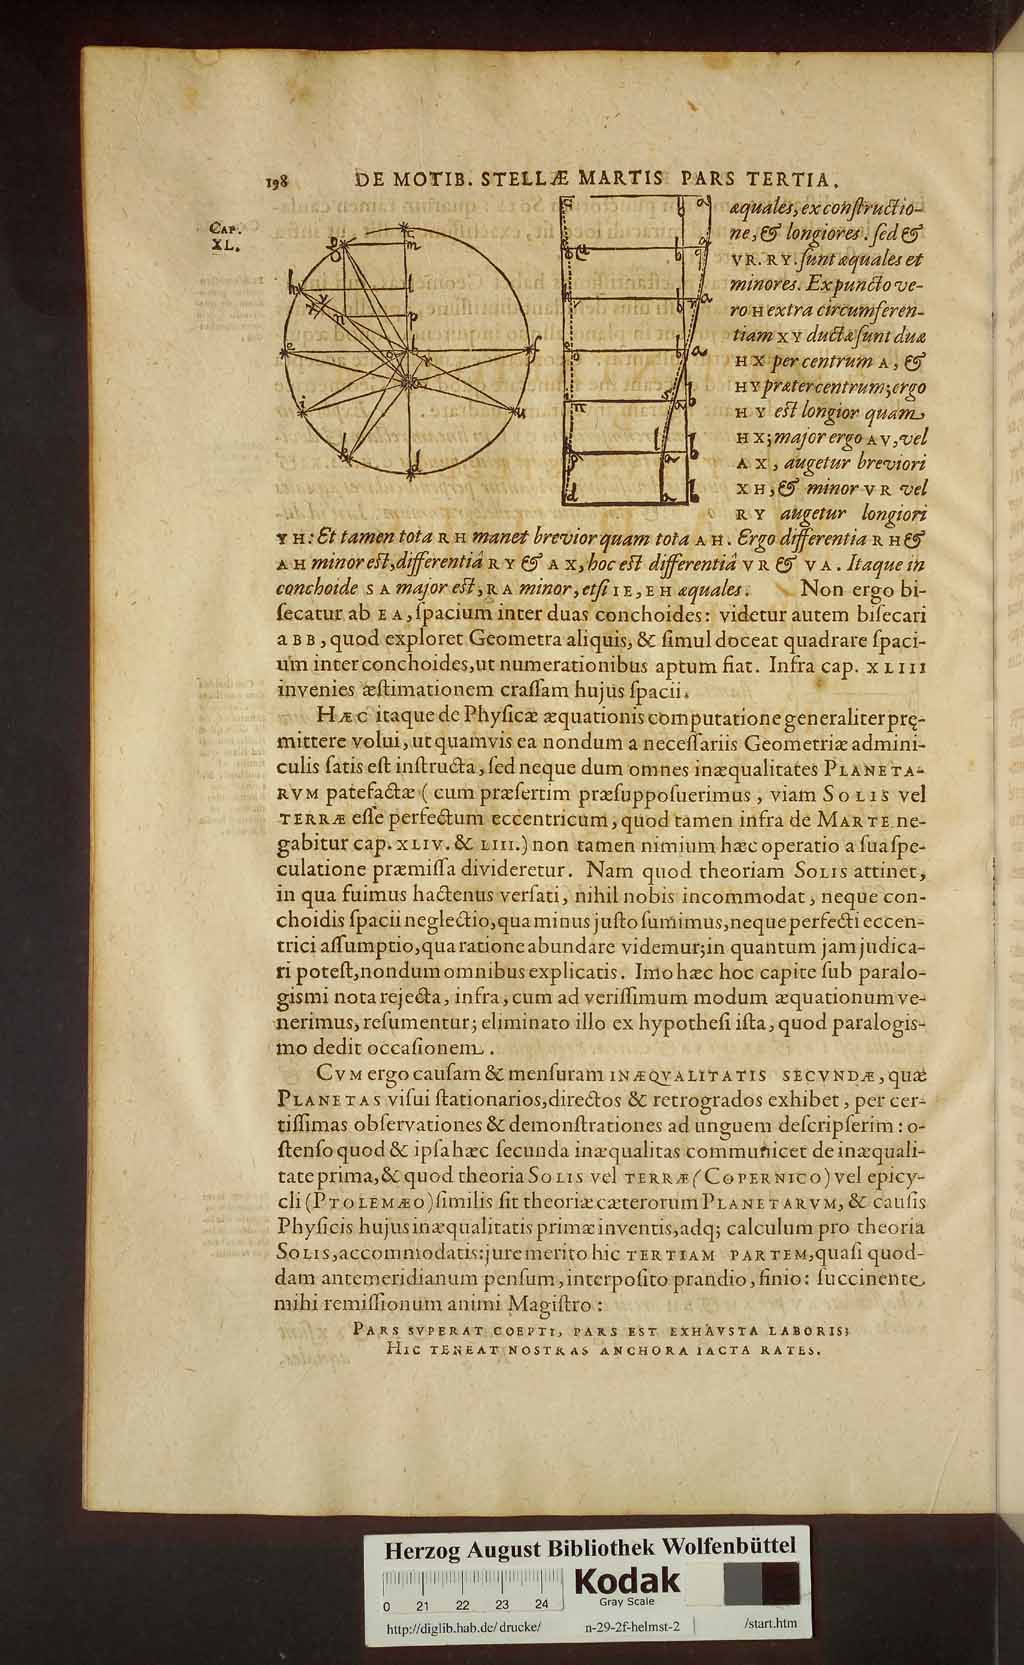 198 DE MOTIB. STELLÆ MARTIS PARS TERTIA.
CAP.
XL.
æquales, ex conſtructio-
ne, & longiores. ſed &
VR. RY. ſunt æquales et
minores. Ex puncto ve-
ro H extra circumferen-
tiam XY ductæ ſunt duæ
HX per centrum A, &
HY præter centrum; ergo
HY eſt longior quam
HX; major ergo AV, vel
AX, augetur breviori
XH, & minor VR vel
RY augetur longiori
YH: Et tamen tota RH manet brevior quam tota AH. Ergo differentia RH &
AH minor eſt, differentiâ RY & AX, hoc eſt differentiâ VR & VA. Itaque in
conchoide SA major eſt, RA minor, etſi IE, EH æquales. Non ergo bi-
ſecatur ab EA, ſpacium inter duas conchoides: videtur autem biſecari
a BB, quod exploret Geometra aliquis, & ſimul doceat quadrare ſpaci-
um inter conchoides, ut numerationibus aptum fiat. Infra cap. XLIII
invenies æſtimationem craſſam hujus ſpacii.
HÆC itaque de Phyſicæ æquationis computatione generaliter prę-
mittere volui, ut quamvis ea nondum a neceſſariis Geometriæ admini-
culis ſatis eſt inſtructa, ſed neque dum omnes inæqualitates PLANETA-
RVM patefactæ (cum præſertim præſuppoſuerimus, viam SOLIS vel
TERRÆ eſſe perfectum eccentricum, quod tamen infra de MARTE ne-
gabitur cap. XLIV. & LIII.) non tamen nimium hæc operatio a ſua ſpe-
culatione præmiſſa divideretur. Nam quod theoriam SOLIS attinet,
in qua fuimus hactenus verſati, nihil nobis incommodat, neque con-
choidis ſpacii neglectio, qua minus juſto ſumimus, neque perfecti eccen-
trici aſſumptio, qua ratione abundare videmur; in quantum jam judica-
ri poteſt, nondum omnibus explicatis. Imo hæc hoc capite ſub paralo-
giſmi nota rejecta, infra, cum ad veriſſimum modum æquationum ve-
nerimus, reſumentur; eliminato illo ex hypotheſi iſta, quod paralogiſ-
mo dedit occaſionem.
CVM ergo cauſam & menſuram INÆQVALITATIS SECVNDÆ, quæ
PLANETAS viſui ſtationarios, directos & retrogrados exhibet, per cer-
tiſſimas obſervationes & demonſtrationes ad unguem deſcripſerim: o-
ſtenſo quod & ipſa hæc ſecunda inæqualitas communicet de inæquali-
tate prima, & quod theoria SOLIS vel TERRÆ (COPERNICO) vel epicy-
cli (PTOLEMÆO) ſimilis ſit theoriæ cæterorum PLANETARVM, & cauſis
Phyſicis hujus inæqualitatis primæ inventis, adq; calculum pro theoria
SOLIS, accommodatis: jure merito hic TERTIAM PARTEM, quaſi quod-
dam antemeridianum penſum, interpoſito prandio, finio: ſuccinente
mihi remiſſionum animi Magiſtro:
PARS SVPERAT COEPTI, PARS EST EXHAVSTA LABORIS;
HIC TENEAT NOSTRAS ANCHORA IACTA RATES.
Herzog August Bibliothek Wolfenbüttel
Kodak
Gray Scale
0 21 22 23 24
http://diglib.hab.de/drucke/ n-29-2f-helmst-2 /start.htm